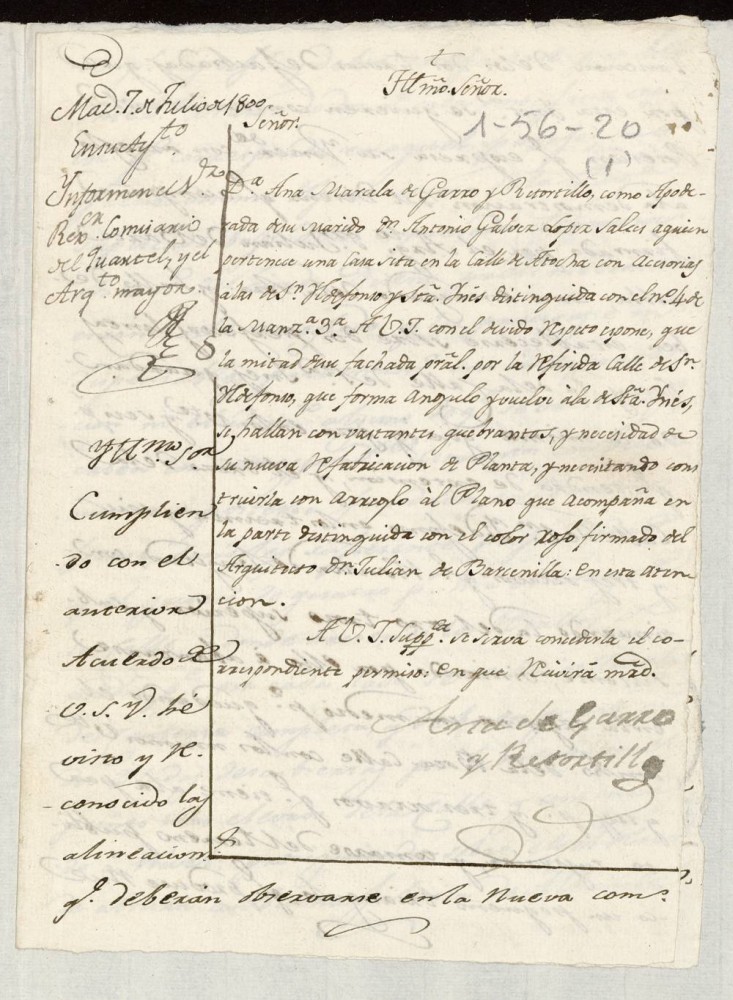 Yllmo. Señor.
1-56-20
(1)
Mad. 7. de Julio de 1800
Señor.
En su Ayto.
Ynformen el Sr.
Rexor. Comisario
del Quartel, y el
Arqto. mayor.
Da. Ana Marcela de Garro y Retortillo, como Apode-
rada de su marido Dn. Antonio Galvez Lopez Salces aquien
pertenece una Casa sita en la Calle de Atocha con Acesorias
álas de Sn. Yldefonso y Sta. Ynés distinguida con el no. 4 de
la Manza. 3a. A V. I. con el devido respeto espone, que
la mitad de su fachada pral. por la referida Calle de Sn.
Yldefonso, que forma Angulo y vuelve ála de Sta. Ynés,
se hallan con vastantes quebrantos, y necesidad de
su nueva refabricacion de Planta, y necesitando cons
truirla con arreglo ál Plano que acompaña en
la parte distinguida con el color roso firmado del
Arquitecto Dn. Julian de Barcenilla: en esta aten
cion.
A V. I. suppca. se sirva concederla el co-
rrespondiente permiso: en que recivirá mrd.
Ana de Garro
y Retortillo
Yllmo. Sor.
Cumplien
do con el
anterior
Acuerdo de
V. S. Y. hé
visto y re-
conocido las
alineacion.s
q.e deberán observarse en la nueva cons.